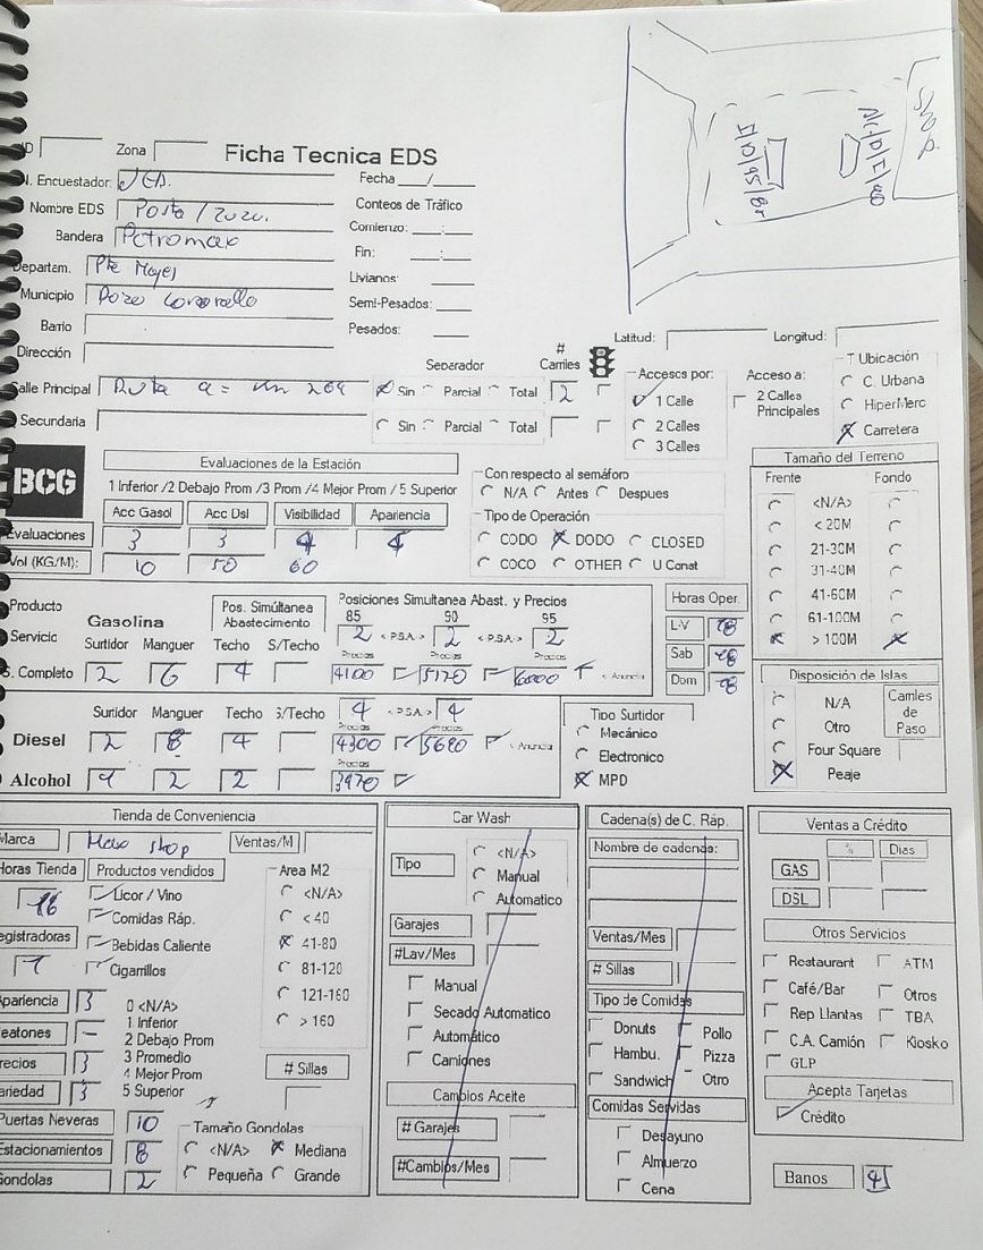 SHOP
D/D/95/Br
ID Zona Ficha Tecnica EDS
N. Encuestador: JEA. Fecha ___/___
Nombre EDS Posta / Zuzu. Conteos de Tráfico
Bandera Petromax Comienzo: __:__
Departam. Pte Hayes Fin: __:__
Livianos:
Municipio Pozo Colorado Semi-Pesados:
Barrio Pesados:
Dirección
Latitud: Longitud:
Separador # Carriles
Calle Principal Ruta 9 = Km 269 Sin Parcial Total 2
Secundaria Sin Parcial Total
Accesos por:
1 Calle
2 Calles
3 Calles
Acceso a:
2 Calles Principales
T Ubicación
C. Urbana
HiperMerc
Carretera
BCG
Evaluaciones de la Estación
1 Inferior /2 Debajo Prom /3 Prom /4 Mejor Prom / 5 Superior
Acc Gasol Acc Dsl Visibilidad Apariencia
Evaluaciones 3 3 4 4
Vol (KG/M): 10 50 60
Con respecto al semáforo
N/A Antes Despues
Tipo de Operación
CODO DODO CLOSED
COCO OTHER U Const
Tamaño del Terreno
Frente Fondo
<N/A>
< 20M
21-30M
31-40M
41-60M
61-100M
> 100M
Producto
Servicio
Gasolina
Pos. Simúltanea Abastecimiento
Posiciones Simultanea Abast. y Precios
85 90 95
2 < PSA > 2 < PSA > 2
Surtidor Manguer Techo S/Techo
Precios Precios Precios
S. Completo 2 6 4 4100 5170 6000 < Anuncia
Horas Oper.
L-V
Sab
Dom
Surtidor Manguer Techo S/Techo 4 < PSA > 4
Precios Precios
Diesel 2 8 4 4300 5690 < Anuncia
Precios
Alcohol 2 2 3970
Tipo Surtidor
Mecánico
Electronico
MPD
Disposición de Islas
N/A
Otro
Four Square
Peaje
Carriles de Paso
Tienda de Conveniencia
Marca Maxi shop Ventas/M
Horas Tienda Productos vendidos
Licor / Vino
Comidas Ráp.
Registradoras
Bebidas Caliente
Cigarrillos
Area M2
<N/A>
< 40
41-80
81-120
121-160
> 160
Apariencia 3
Peatones -
Precios 3
Variedad 3
0 <N/A>
1 Inferior
2 Debajo Prom
3 Promedio
4 Mejor Prom
5 Superior
# Sillas
Puertas Neveras 10
Estacionamientos 8
Gondolas 2
Tamaño Gondolas
<N/A> Mediana
Pequeña Grande
Car Wash
Tipo
<N/A>
Manual
Automatico
Garajes
#Lav/Mes
Manual
Secado Automatico
Automático
Camiones
Cambios Aceite
# Garajes
#Cambios/Mes
Cadena(s) de C. Ráp.
Nombre de cadenas:
Ventas/Mes
# Sillas
Tipo de Comidas
Donuts Pollo
Hambu. Pizza
Sandwich Otro
Comidas Servidas
Desayuno
Almuerzo
Cena
Ventas a Crédito
% Dias
GAS
DSL
Otros Servicios
Restaurant ATM
Café/Bar Otros
Rep Llantas TBA
C.A. Camión Kiosko
GLP
Acepta Tarjetas
Crédito
Banos 4